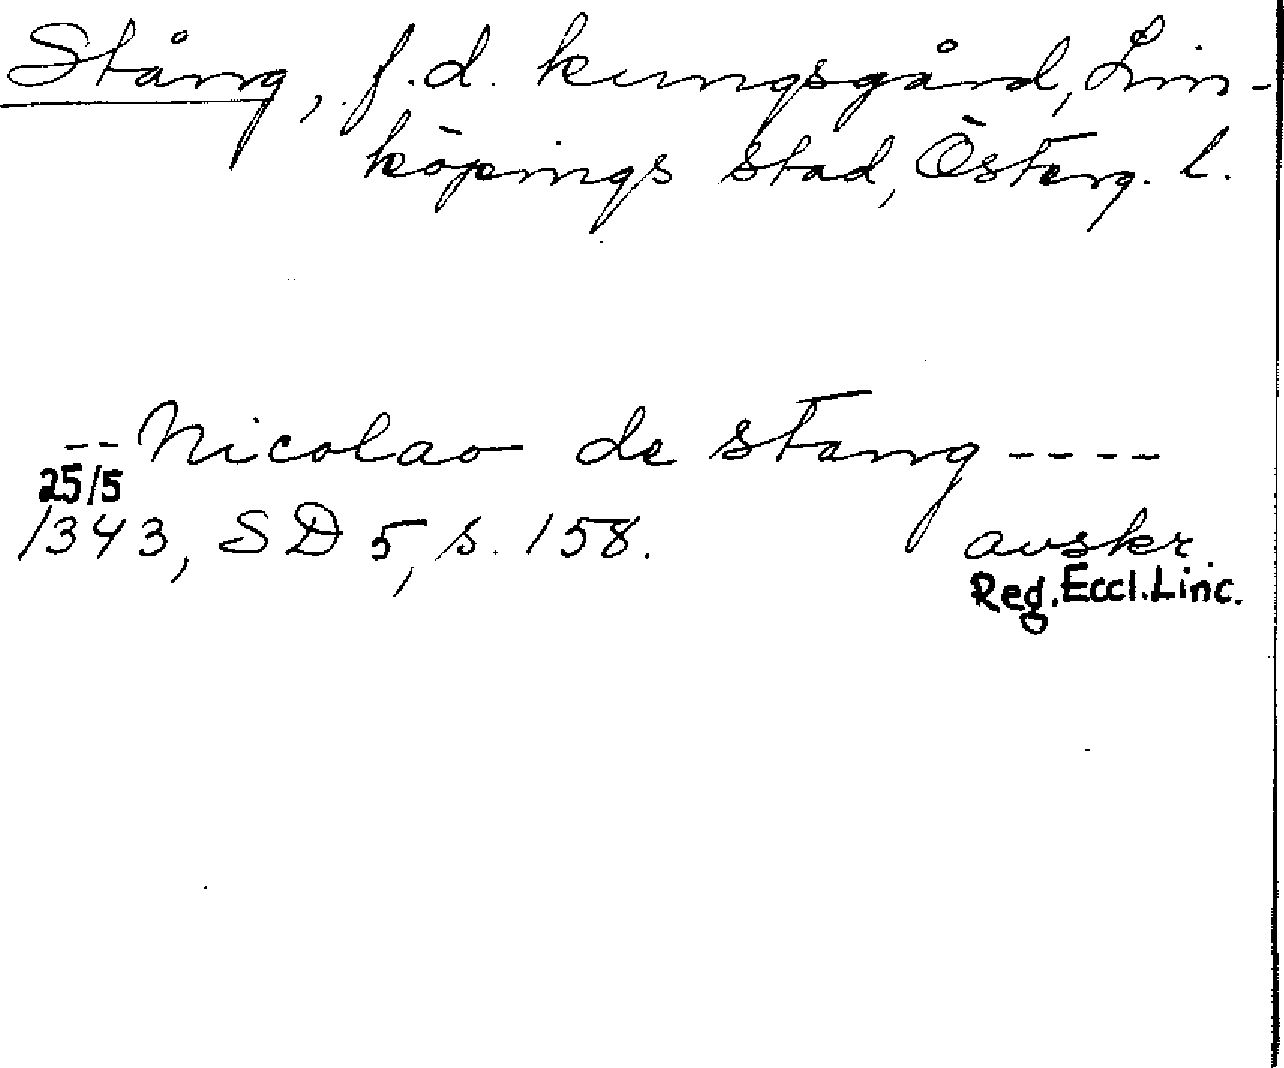 Stång, f.d. kungsgård, Lin-
köpings stad, Österg. l.
-- Nicolao de stang ----
25/5
1343, SD 5, s. 158. avskr.
Reg. Eccl. Linc.